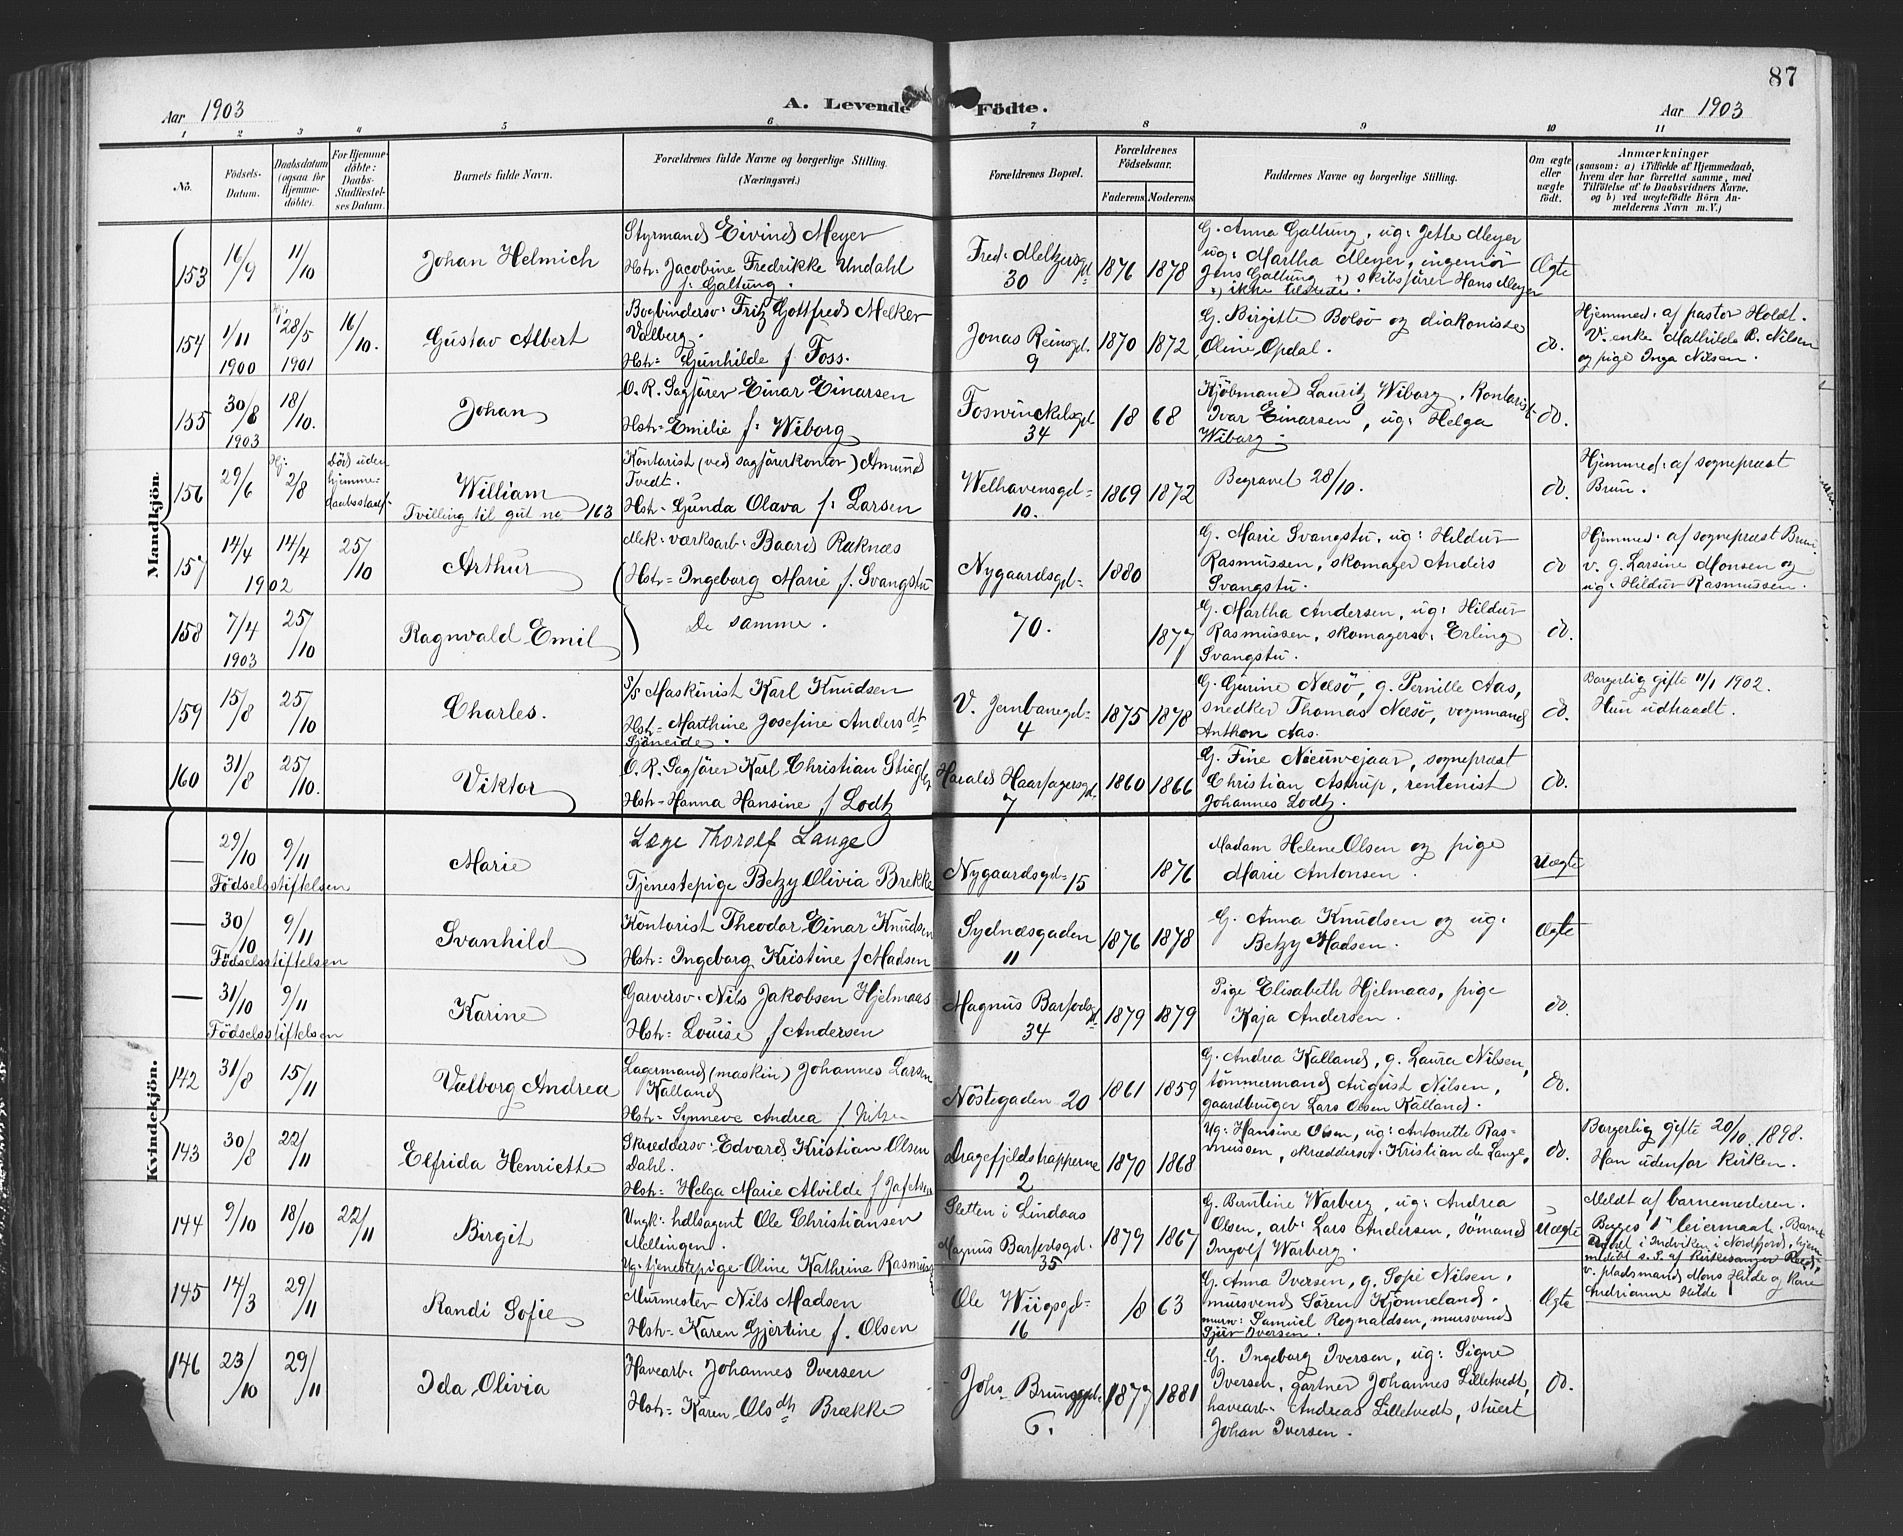 87
Aar 1903
A. Levende Födte.
Aar 1903
1 2 3 4 5 6 7 8 9 10 11
No.
Födsels-Datum.
Daabsdatum (ogsaa for Hjemme-döbte).
For Hjemme-döbte: Daabs-Stadfæstel-ses Datum.
Barnets fulde Navn.
Forældrenes fulde Navne og borgerlige Stilling.
(Næringsvei.)
Forældrenes Bopæl.
Forældrenes Födselsaar.
Faderens Moderens
Faddernes Navne og borgerlige Stilling.
Om ægte eller uægte födt.
Anmærkninger
(saasom: a) i Tilfælde af Hjemmedaab, hvem der har forrettet samme, med Tilföielse af to Daabsvidners Navne, og b) ved uægtefödte Börn An-melderens Navn m. V.)
Mandkjön.
153 16/9 11/10 Johan Helmich
Styrmand Eivind Meyer
Hstr: Jacobine Fredrikke Undahl
f. Galtung.
Fred. Meltzersgd: 30
1876 1878
G. Anna Galtung, ug: Jette Meyer
ug: Martha Meyer, ingeniör
Jens Galtung +) skibsförer Hans Meyer
+) ikke tilstede.
Ægte
154 1/11 1900 Hj. 28/5 1901 16/10. Gustav Albert
Bogbindersv: Fritz Gottfred Melker
Valberg.
Hstr: Gunhilde f. Foss.
Jonas Reinsgd. 9
1870 1872
G. Birgitte Bolsö og diakonisse
Oline Opdal.
do.
Hjemmed: af pastor Holdt.
V. enke Mathilde R. Nilsen
og pige Inga Nilsen.
155 30/8 1903 18/10. Johan
O. R. Sagförer Einar Einarsen
Hstr: Emilie f: Wiborg
Foswinckelsgd. 34
18 68
Kjöbmand Lauritz Wiborg, Kontorist
Ivar Einarsen, ug: Helga
Wiborg.
do.
156 29/6 Hj. 2/8 Död uden hjemme-daabsstadf. William
Tvilling til gut no 163
Kontorist (ved sagförerkontor) Amund
Tvedt.
Hstr: Gunda Olava f: Larsen
Welhavensgd: 10.
1869 1872
Begravet 28/10.
do.
Hjemmed: af sognepræst
Brun.
157 14/4 14/4 1902 25/10 Arthur
Mek: værksarb: Baard Raknæs
Hstr: Ingeborg Marie f. Svangstu
Nygaardsgd:
1880
G. Marie Svangstu, ug: Hildur
Rasmussen, skomager Anders
Svangstu.
do
Hjemmed: af sognepræst Brun
v. g. Larsine Monsen og
ug: Hildur Rasmussen.
158 7/4 1903 25/10 Ragnvald Emil
De samme.
70.
1877
G. Martha Andersen, ug: Hildur
Rasmussen, skomagersv: Erling
Svangstu.
do.
159 15/8 25/10 Charles.
S/S Maskinist Karl Knudsen
Hstr: Marthine Josefine Andersdt
Sjöneide.
V. Jernbanegd: 4
1875 1878
G. Gurine Næsö, g. Pernille Aas,
snedker Thomas Næsö, vognmand
Anthon Aas.
do.
Borgerlig gifte 11/1 1902.
Hun udtraadt.
160 31/8 25/10. Viktor
O. R. Sagförer Karl Christian Stiegler
Hstr: Hanna Hansine f. Lodtz
Harald Haarfagersgd: 7
1860 1866
G. Fine Nieuwejaar, sognepræst
Christian Astrup, rentenist
Johannes Lodtz.
do.
Kvindekjön.
— 29/10 9/11 Marie
Födselsstiftelsen
Læge Thorolf Lange
Tjenestepige Betzy Olivia Brekke
Nygaardsgd: 15
1876
Madam Helene Olsen og pige
Marie Antonsen.
Uægte
— 30/10 9/11 Svanhild
Födselsstiftelsen
Kontorist Theodor Einar Knudsen
Hstr: Ingeborg Kristine f Madsen
Sydnæsgaden 11
1876 1878
G. Anna Knudsen og ug:
Betzy Madsen.
Ægte
— 31/10 9/11 Karine
Födselsstiftelsen
Garversv: Nils Jakobsen Hjelmaas
Hstr: Louise f Andersen
Magnus Barfodsgd 34
1879 1879
Pige Elisabeth Hjelmaas, pige
Kaja Andersen.
do.
142 31/8 15/11 Valborg Andrea
Lagermand (maskin) Johannes Larsen
Kalland
Hstr: Synneve Andrea f.
Nöstegaden 20
1861 1859
G. Andrea Kalland, g. Laura Nilsen,
tömmermand August Nilsen,
gaardbruger Lars Olsen Kalland.
do.
143 30/8 22/11 Elfrida Henriette
Skræddersv: Edvard Kristian Olsen
Dahl.
Hstr: Helga Marie Alvilde f Jafetsen
Dragefjeldstrapperne 2
1870 1868
Ug: Hansine Olsen, ug: Antonette Ras-
mussen, skræddersv: Kristian de Lange,
do.
Borgerlig gifte 20/10. 1898.
Han udenfor kirken.
144 9/10 18/10 22/11 Birgit
Ungk: hdlsagent Ole Christiansen
Mellingen.
Ug: tjenestepige Oline Kathrine Rasmus
Sletten i Lindaas
Magnus Barfodsgd. 35
1879 1867
G. Berntine Warberg, ug: Andrea
Olsen, arb: Lars Andersen, sömand
Ingolf Warberg.
Uægte
Meldt af barnemoderen.
Begges 1ste leiermaal. Barnet
födt i Indviken i Nordfjord, hjem
medöbt s. S. af kirkesanger
v. pladsmand Mons Hilde og Kone
Andrianne Hilde
145 14/3 29/11 Randi Sofie
Murmester Nils Madsen
Hstr: Karen Gjertine f. Olsen
Ole Wiigsgd: 16
18 63
G. Anna Iversen, g. Sofie Nilsen,
mursvend Sören Kjönneland.
murm: Samuel Regnaldsen, mursvend
Sjur Iversen.
Ægte
146 23/10 29/11 Ida Olivia
Havearb: Johannes Iversen
Hstr: Karen Olsdtr Brække
Johs Brunsgd. 6.
1877 1881
G. Ingeborg Iversen, ug: Signe
Iversen, gartner Johannes Lilletvedt,
havearb: Andreas Lilletvedt, stuert
Johan Iversen.
do.